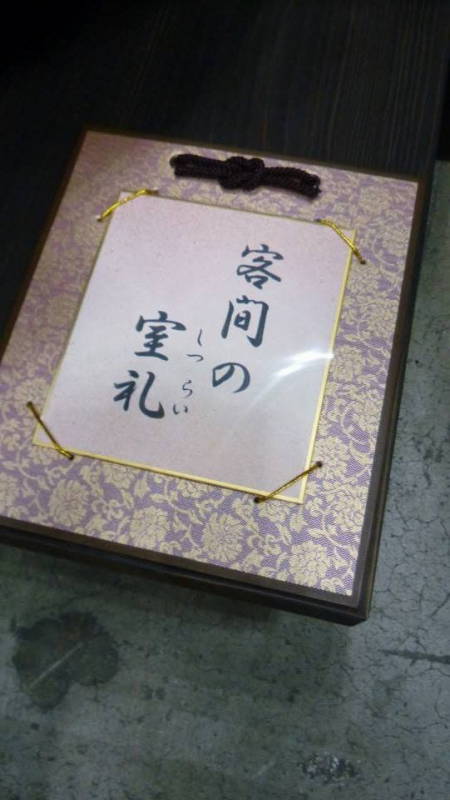 客間の
室礼
しつらい